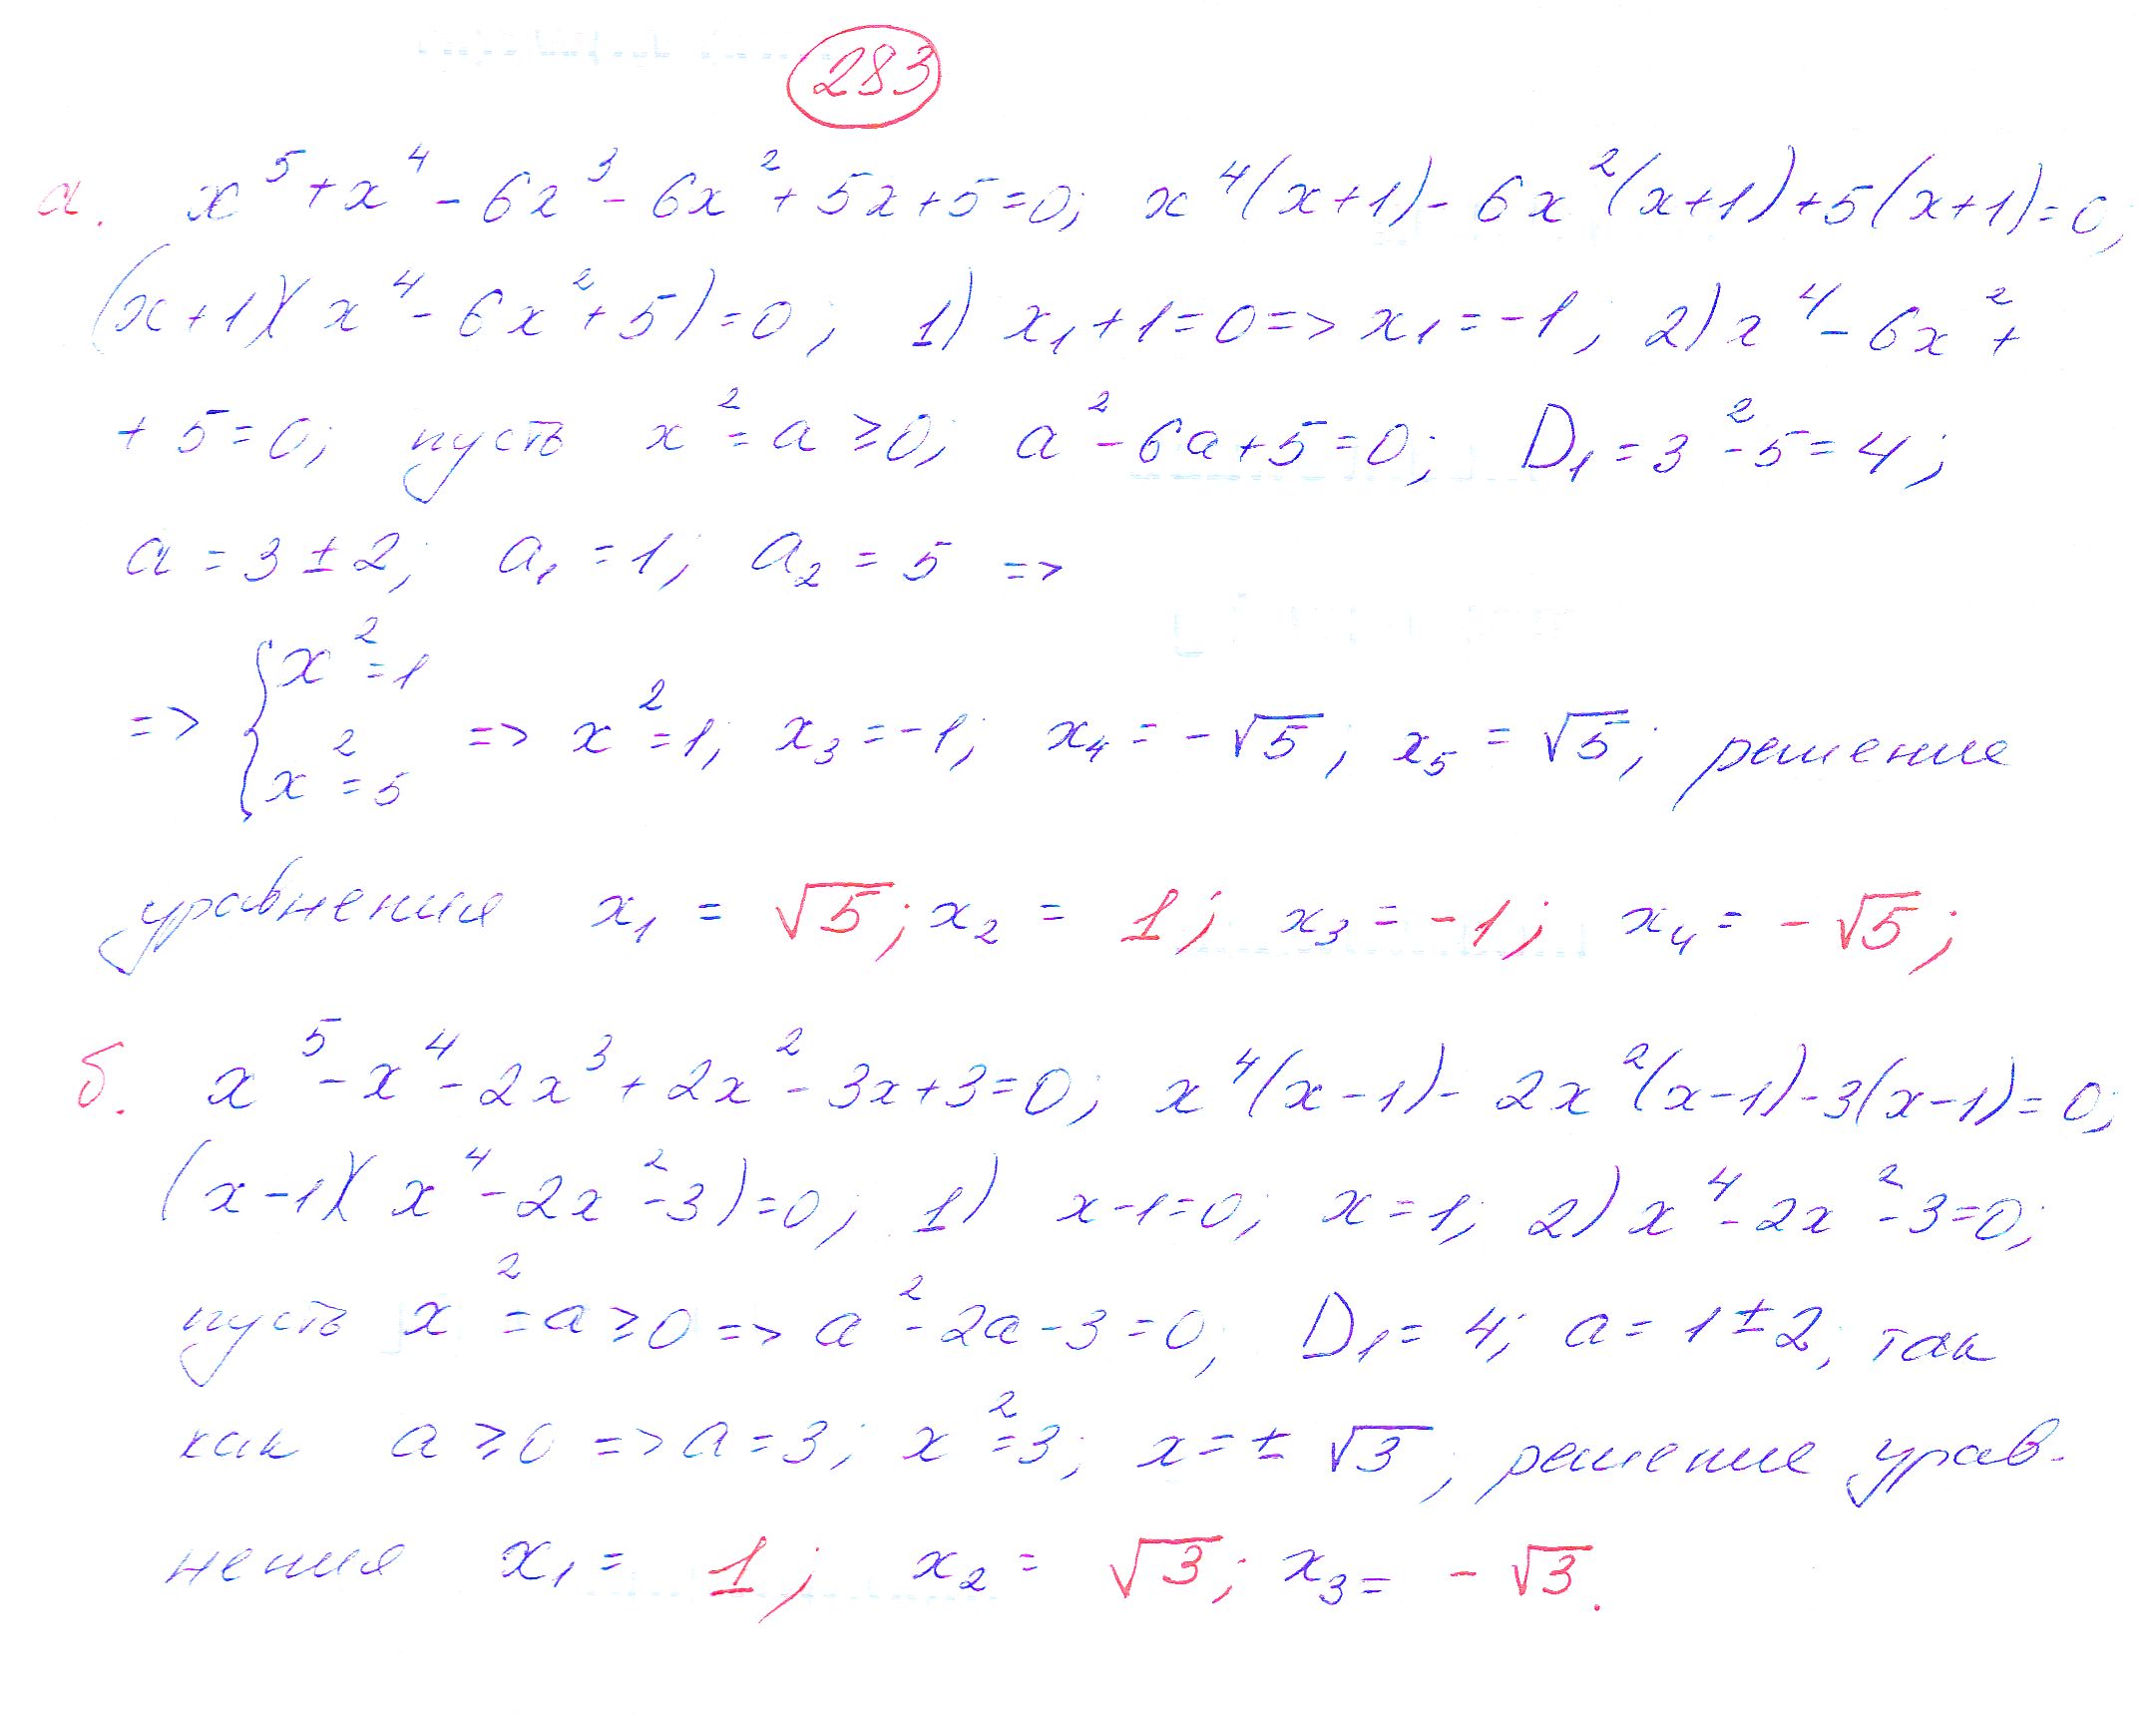 283
а. x⁵ + x⁴ - 6x³ - 6x² + 5x + 5 = 0; x⁴(x+1) - 6x²(x+1) + 5(x+1) = 0;
(x+1)(x⁴ - 6x² + 5) = 0; 1) x₁ + 1 = 0 => x₁ = -1, 2) x⁴ - 6x² +
+ 5 = 0; пусть x² = a ≥ 0; a² - 6a + 5 = 0; D₁ = 3² - 5 = 4;
a = 3 ± 2; a₁ = 1; a₂ = 5 =>
=> { x² = 1 x² = 5 => x² = 1; x₃ = -1; x₄ = -√5; x₅ = √5; решение
уравнения x₁ = √5; x₂ = 1; x₃ = -1; x₄ = -√5;
б. x⁵ - x⁴ - 2x³ + 2x² - 3x + 3 = 0; x⁴(x-1) - 2x²(x-1) - 3(x-1) = 0;
(x-1)(x⁴ - 2x² - 3) = 0; 1) x-1 = 0; x = 1; 2) x⁴ - 2x² - 3 = 0;
пусть x² = a ≥ 0 => a² - 2a - 3 = 0; D₁ = 4; a = 1 ± 2; так
как a ≥ 0 => a = 3; x² = 3; x = ± √3; решение урав-
нения x₁ = 1; x₂ = √3; x₃ = - √3.